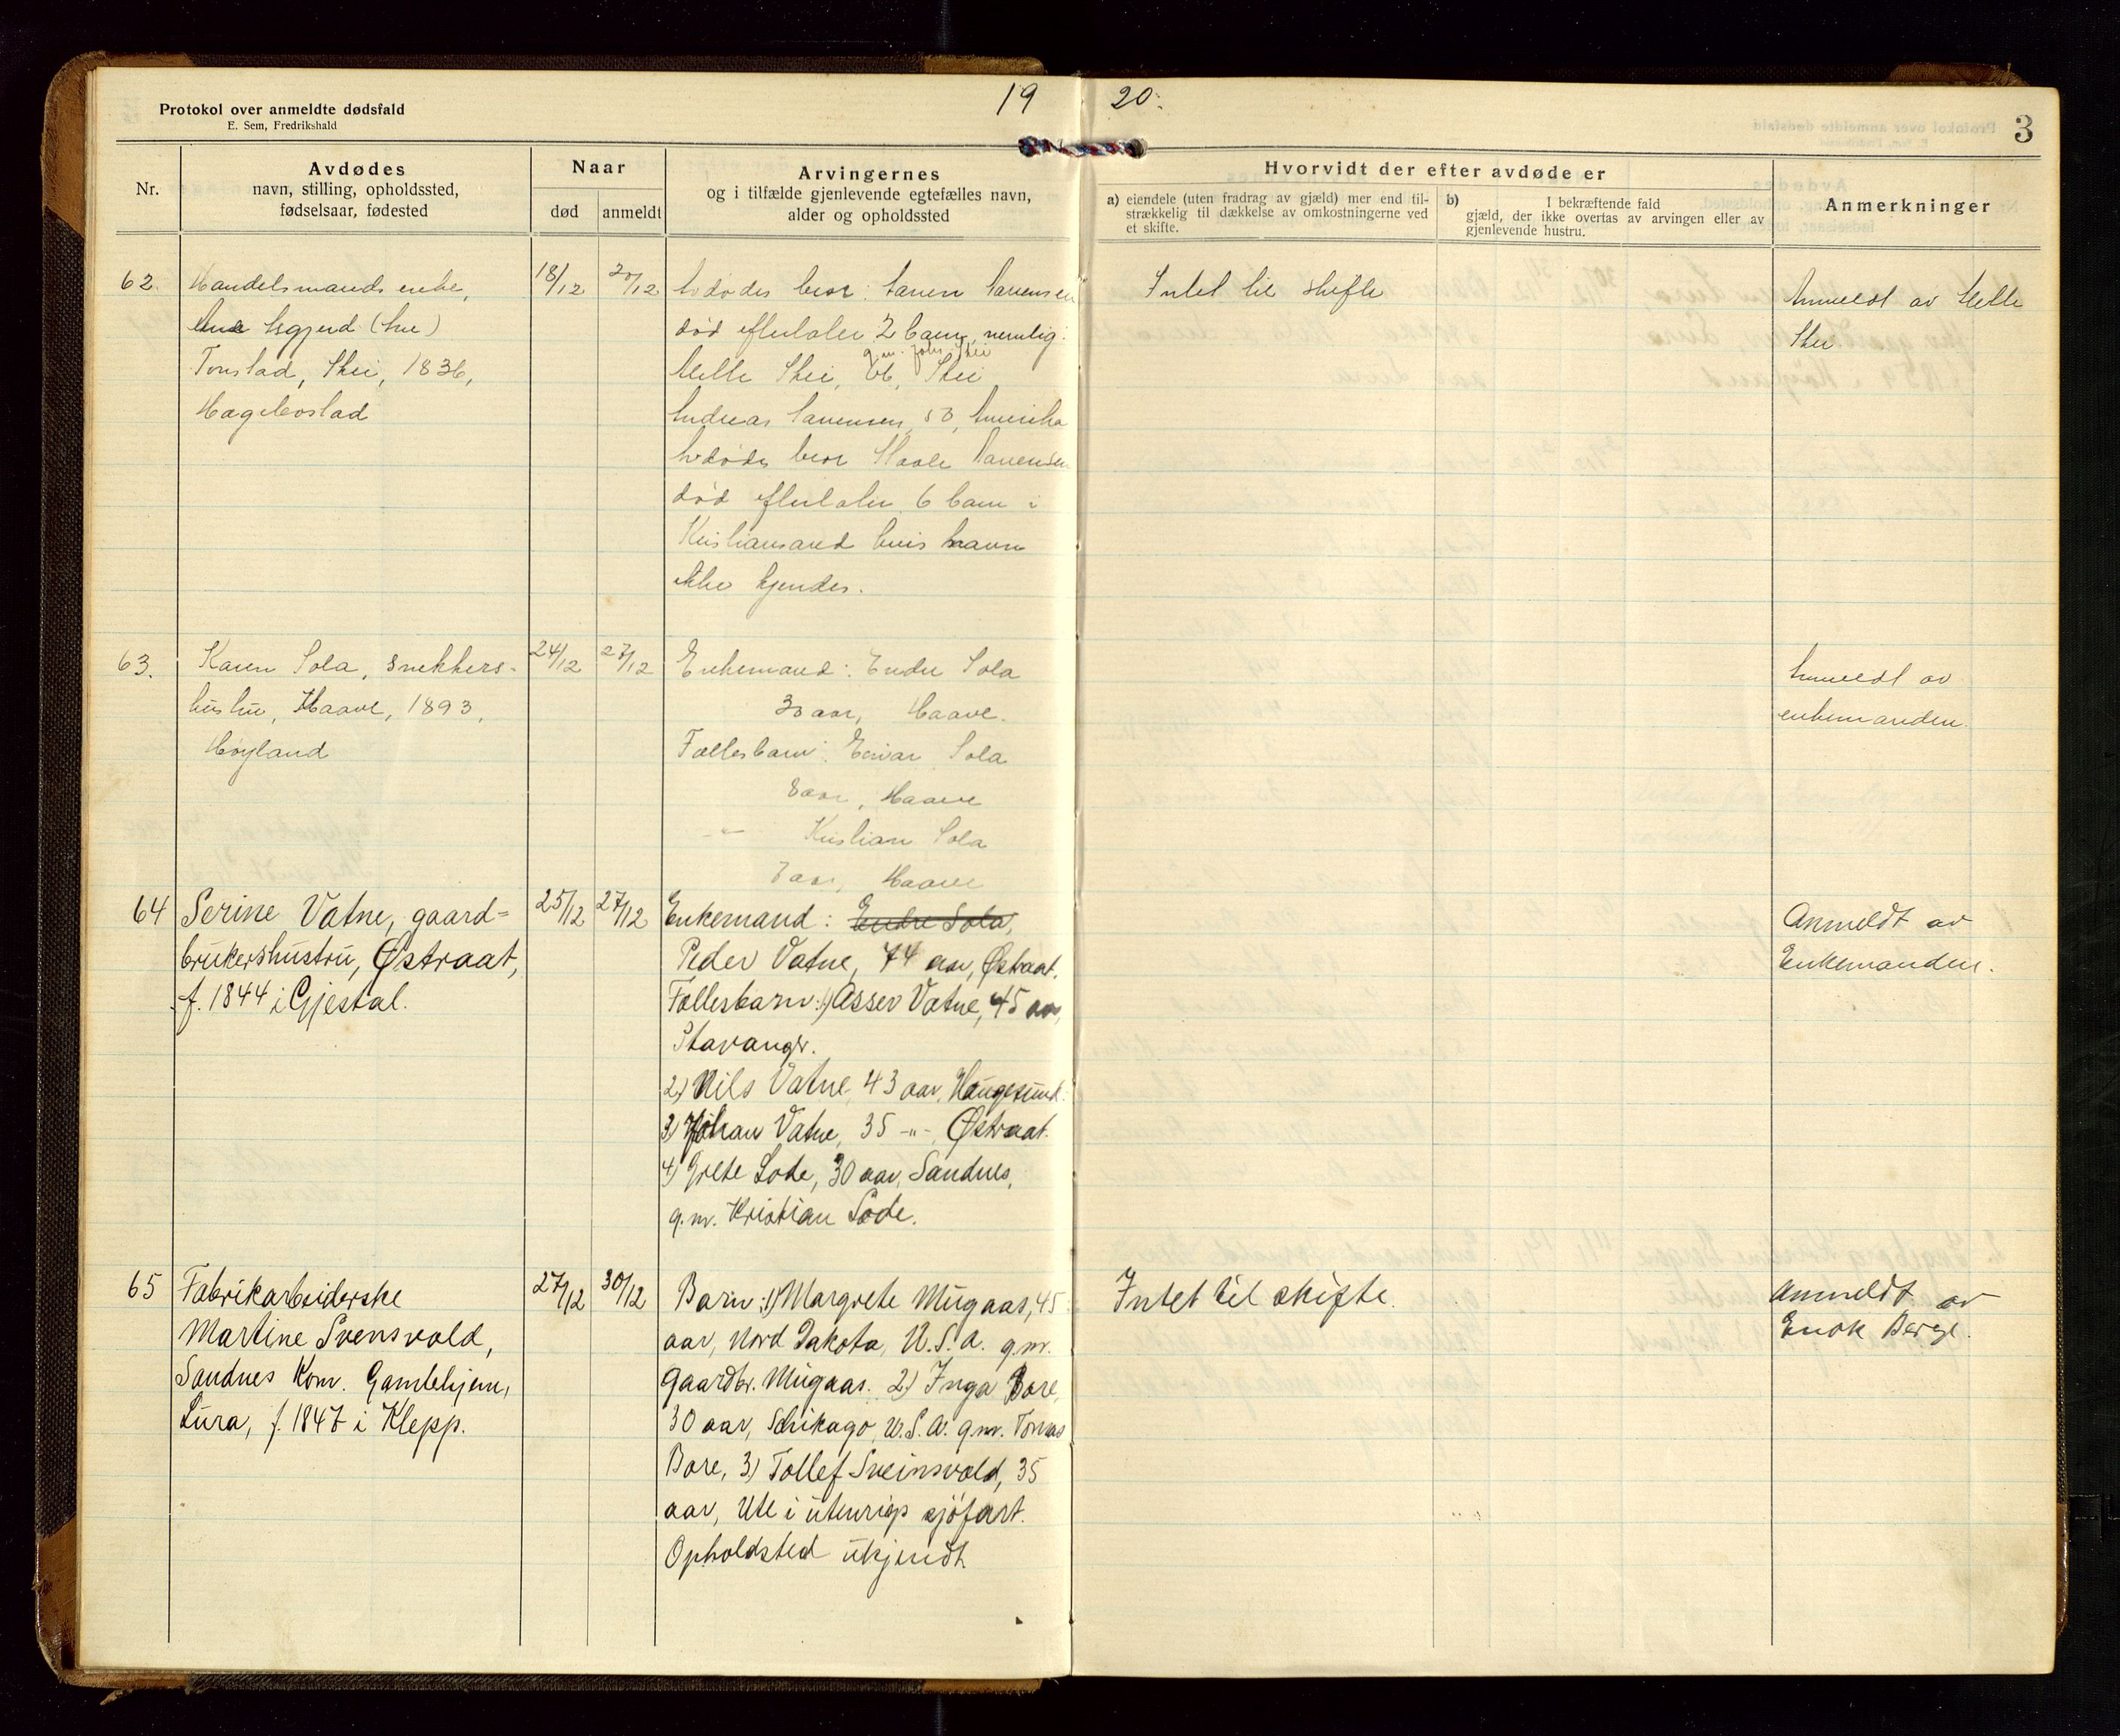 19 20.
3
Protokol over anmeldte dødsfald
E. Sem, Fredrikshald
Nr.
Avdødes
navn, stilling, opholdssted,
fødselsaar, fødested
Naar
død
anmeldt
Arvingernes
og i tilfælde gjenlevende egtefælles navn,
alder og opholdssted
Hvorvidt der efter avdøde er
a) eiendele (uten fradrag av gjæld) mer end til-
strækkelig til dækkelse av omkostningerne ved
et skifte.
b) I bekræftende fald
gjæld, der ikke overtas av arvingen eller av
gjenlevende hustru.
Anmerkninger
62.
Handelsmands enke,
Tonstad, Skei, 1836,
Hægebostad
18/12
20/12
Avdødes bror:
død efterlater 2 barn, nemlig:
g.m. John Skei
Skei, Skei
Andreas 53, Amerika
Avdødes bror
død efterlater 6 barn i
Kristiansand hvis navn
ikke kjendes.
Intet til skifte
Anmeldt av
Skei
63.
Karen Sola, snekkers-
hustru, Haave, 1893,
Høyland
24/12
27/12
Enkemand: Endre Sola
30 aar, Haave.
Fællesbarn: Einar Sola
8 aar, Haave
-"- Kristian Sola
aar, Haave
Anmeldt av
enkemanden.
64
Serine Vatne, gaard=
brukershustru, Østraat,
f. 1844 i Gjestal.
25/12
27/12
Enkemand: Endre Sola,
Peder Vatne, 74 aar, Østraat.
Fællesbarn: 1) Asser Vatne, 45 aar,
Stavanger.
2) Nils Vatne, 43 aar, Haugesund.
3) Johan Vatne, 35 -"- Østraat.
4) Grete Lode, 30 aar, Sandnes,
g.m. Kristian Lode.
Anmeldt av
Enkemanden.
65
Fabrikarbeiderske
Martine Svensvold,
Sandnes Kom. Gamlehjem,
Lura, f. 1847 i Klepp.
27/12
30/12
Barn: 1) Margrete Mugaas, 45
aar, Nord Dakota, U.S.A. g.m.
Gaardbr. Mugaas. 2) Inga Bore,
30 aar, Schikago, U.S.A. g.m. Tomas
Bore, 3) Tollef Sveinsvold, 35
aar, Ute i utenrigs sjöfart.
Opholdsted ukjendt
Intet til skifte.
Anmeldt av
Enok Berge.